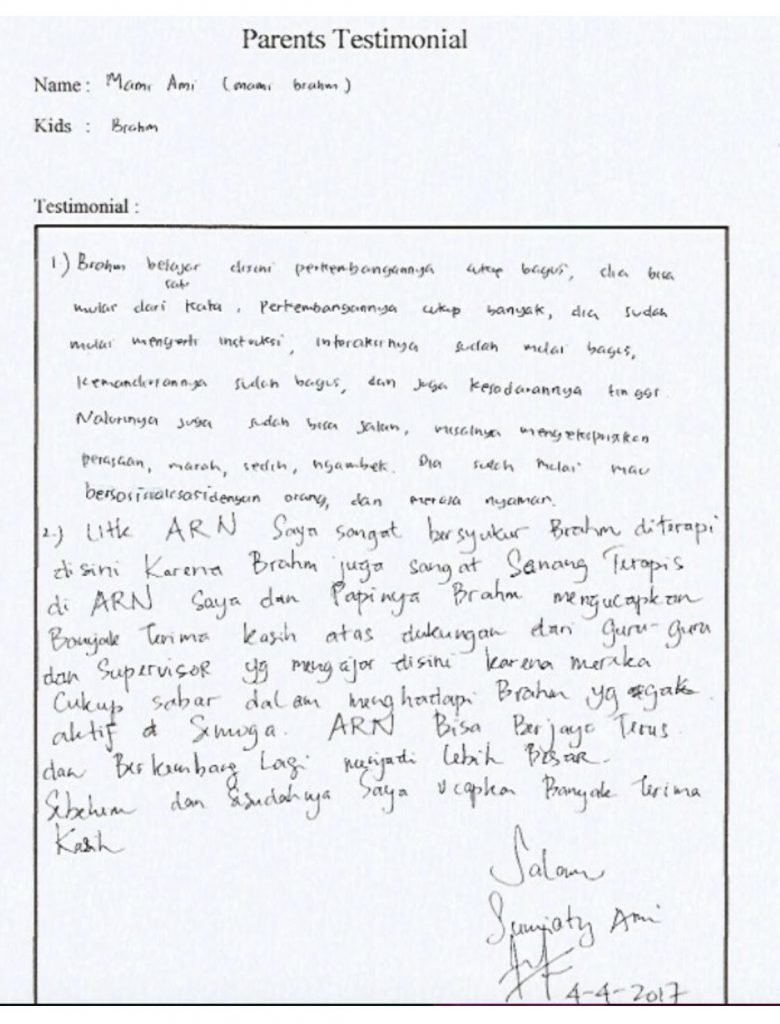 Parents Testimonial
Name : Mami Ami (mami brahm)
Kids : Brahm
Testimonial :
1.) Brahm belajar disini perkembangannya cukup bagus, dia bisa
satu
mulai dari kata. Perkembangannya cukup banyak, dia sudah
mulai mengerti instruksi, interaksinya sudah mulai bagus,
kemandiriannya sudah bagus, dan juga kesadarannya tinggi.
Nalurinya juga sudah bisa jalan, misalnya mengekspresikan
perasaan, marah, sedih, ngambek. Dia sudah mulai mau
bersosialisasi dengan orang, dan merasa nyaman.
2.) Utk ARN Saya sangat bersyukur Brahm diterapi
disini Karena Brahm juga sangat Senang Terapis
di ARN Saya dan Papinya Brahm mengucapkan
Banyak Terima kasih atas dukungan dari Guru-guru
dan Supervisor yg mengajar disini karena meraka
Cukup sabar dalam menghadapi Brahm yg agak
aktif Semoga. ARN Bisa Berjaya Terus
dan Berkembang Lagi menjadi Lebih Besar.
Sebelum dan Sesudahnya Saya ucapkan Banyak Terima
Kasih
Salam
Sumiaty Ami
4-4-2017